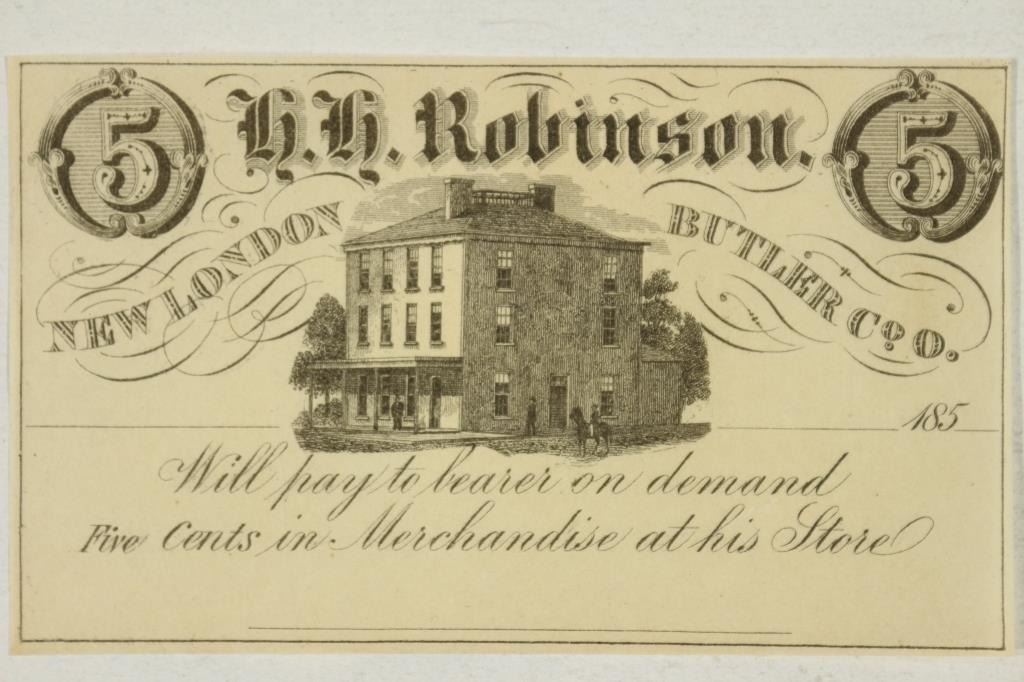 5 H.H. Robinson. 5
NEW LONDON BUTLER Co. O.
185
Will pay to bearer on demand
Five Cents in Merchandise at his Store